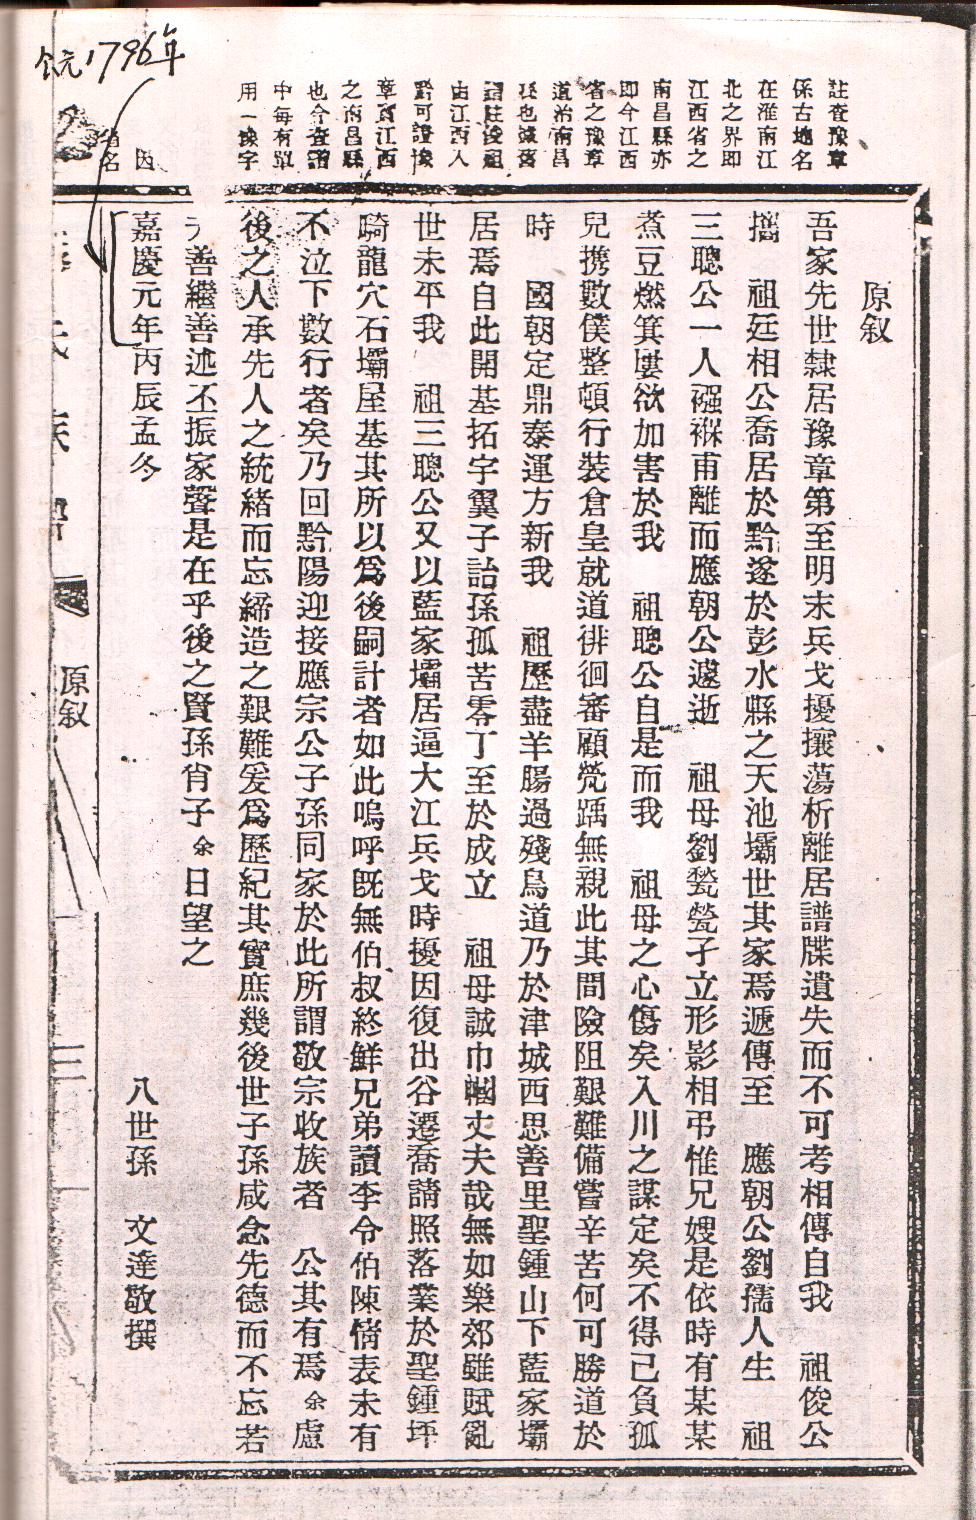 公元1796年
註查豫章
係古地名
在淮南江
北之界即
江西省之
南昌縣亦
即今江西
省之豫章
道治南昌
縣也
由江西入
黔可證豫
章實江西
之南昌縣
也今查譜
中每有單
用一豫字
因
省名
原叙
吾家先世隸居豫章第至明末兵戈擾攘蕩析離居譜牒遺失而不可考相傳自我　祖俊公
攜　祖廷相公喬居於黔遂於彭水縣之天池壩世其家焉遞傳至　應朝公劉孺人生　祖
三聰公一人襁褓甫離而應朝公遽逝　祖母劉煢煢孑立形影相弔惟兄嫂是依時有某某
煮豆燃箕屢欲加害於我　祖聰公自是而我　祖母之心傷矣入川之謀定矣不得已負孤
兒携數僕整頓行裝倉皇就道徘徊審顧煢踽無親此其間險阻艱難備嘗辛苦何可勝道於
時　國朝定鼎泰運方新我　祖歷盡羊腸過殘鳥道乃於津城西思善里聖鍾山下藍家壩
居焉自此開基拓宇翼子詒孫孤苦零丁至於成立　祖母誠巾幗丈夫哉無如樂郊雖賦亂
世未平我　祖三聰公又以藍家壩居逼大江兵戈時擾因復出谷遷喬請照落業於聖鍾坪
騎龍穴石壩屋基其所以爲後嗣計者如此嗚呼既無伯叔終鮮兄弟讀李令伯陳情表未有
不泣下數行者矣乃回黔陽迎接應宗公子孫同家於此所謂敬宗收族者　公其有焉余慮
後之人承先人之統緒而忘締造之艱難爰爲歷紀其實庶幾後世子孫咸念先德而不忘若
善繼善述丕振家聲是在乎後之賢孫肖子余日望之
嘉慶元年丙辰孟冬　八世孫　文達敬撰
原叙